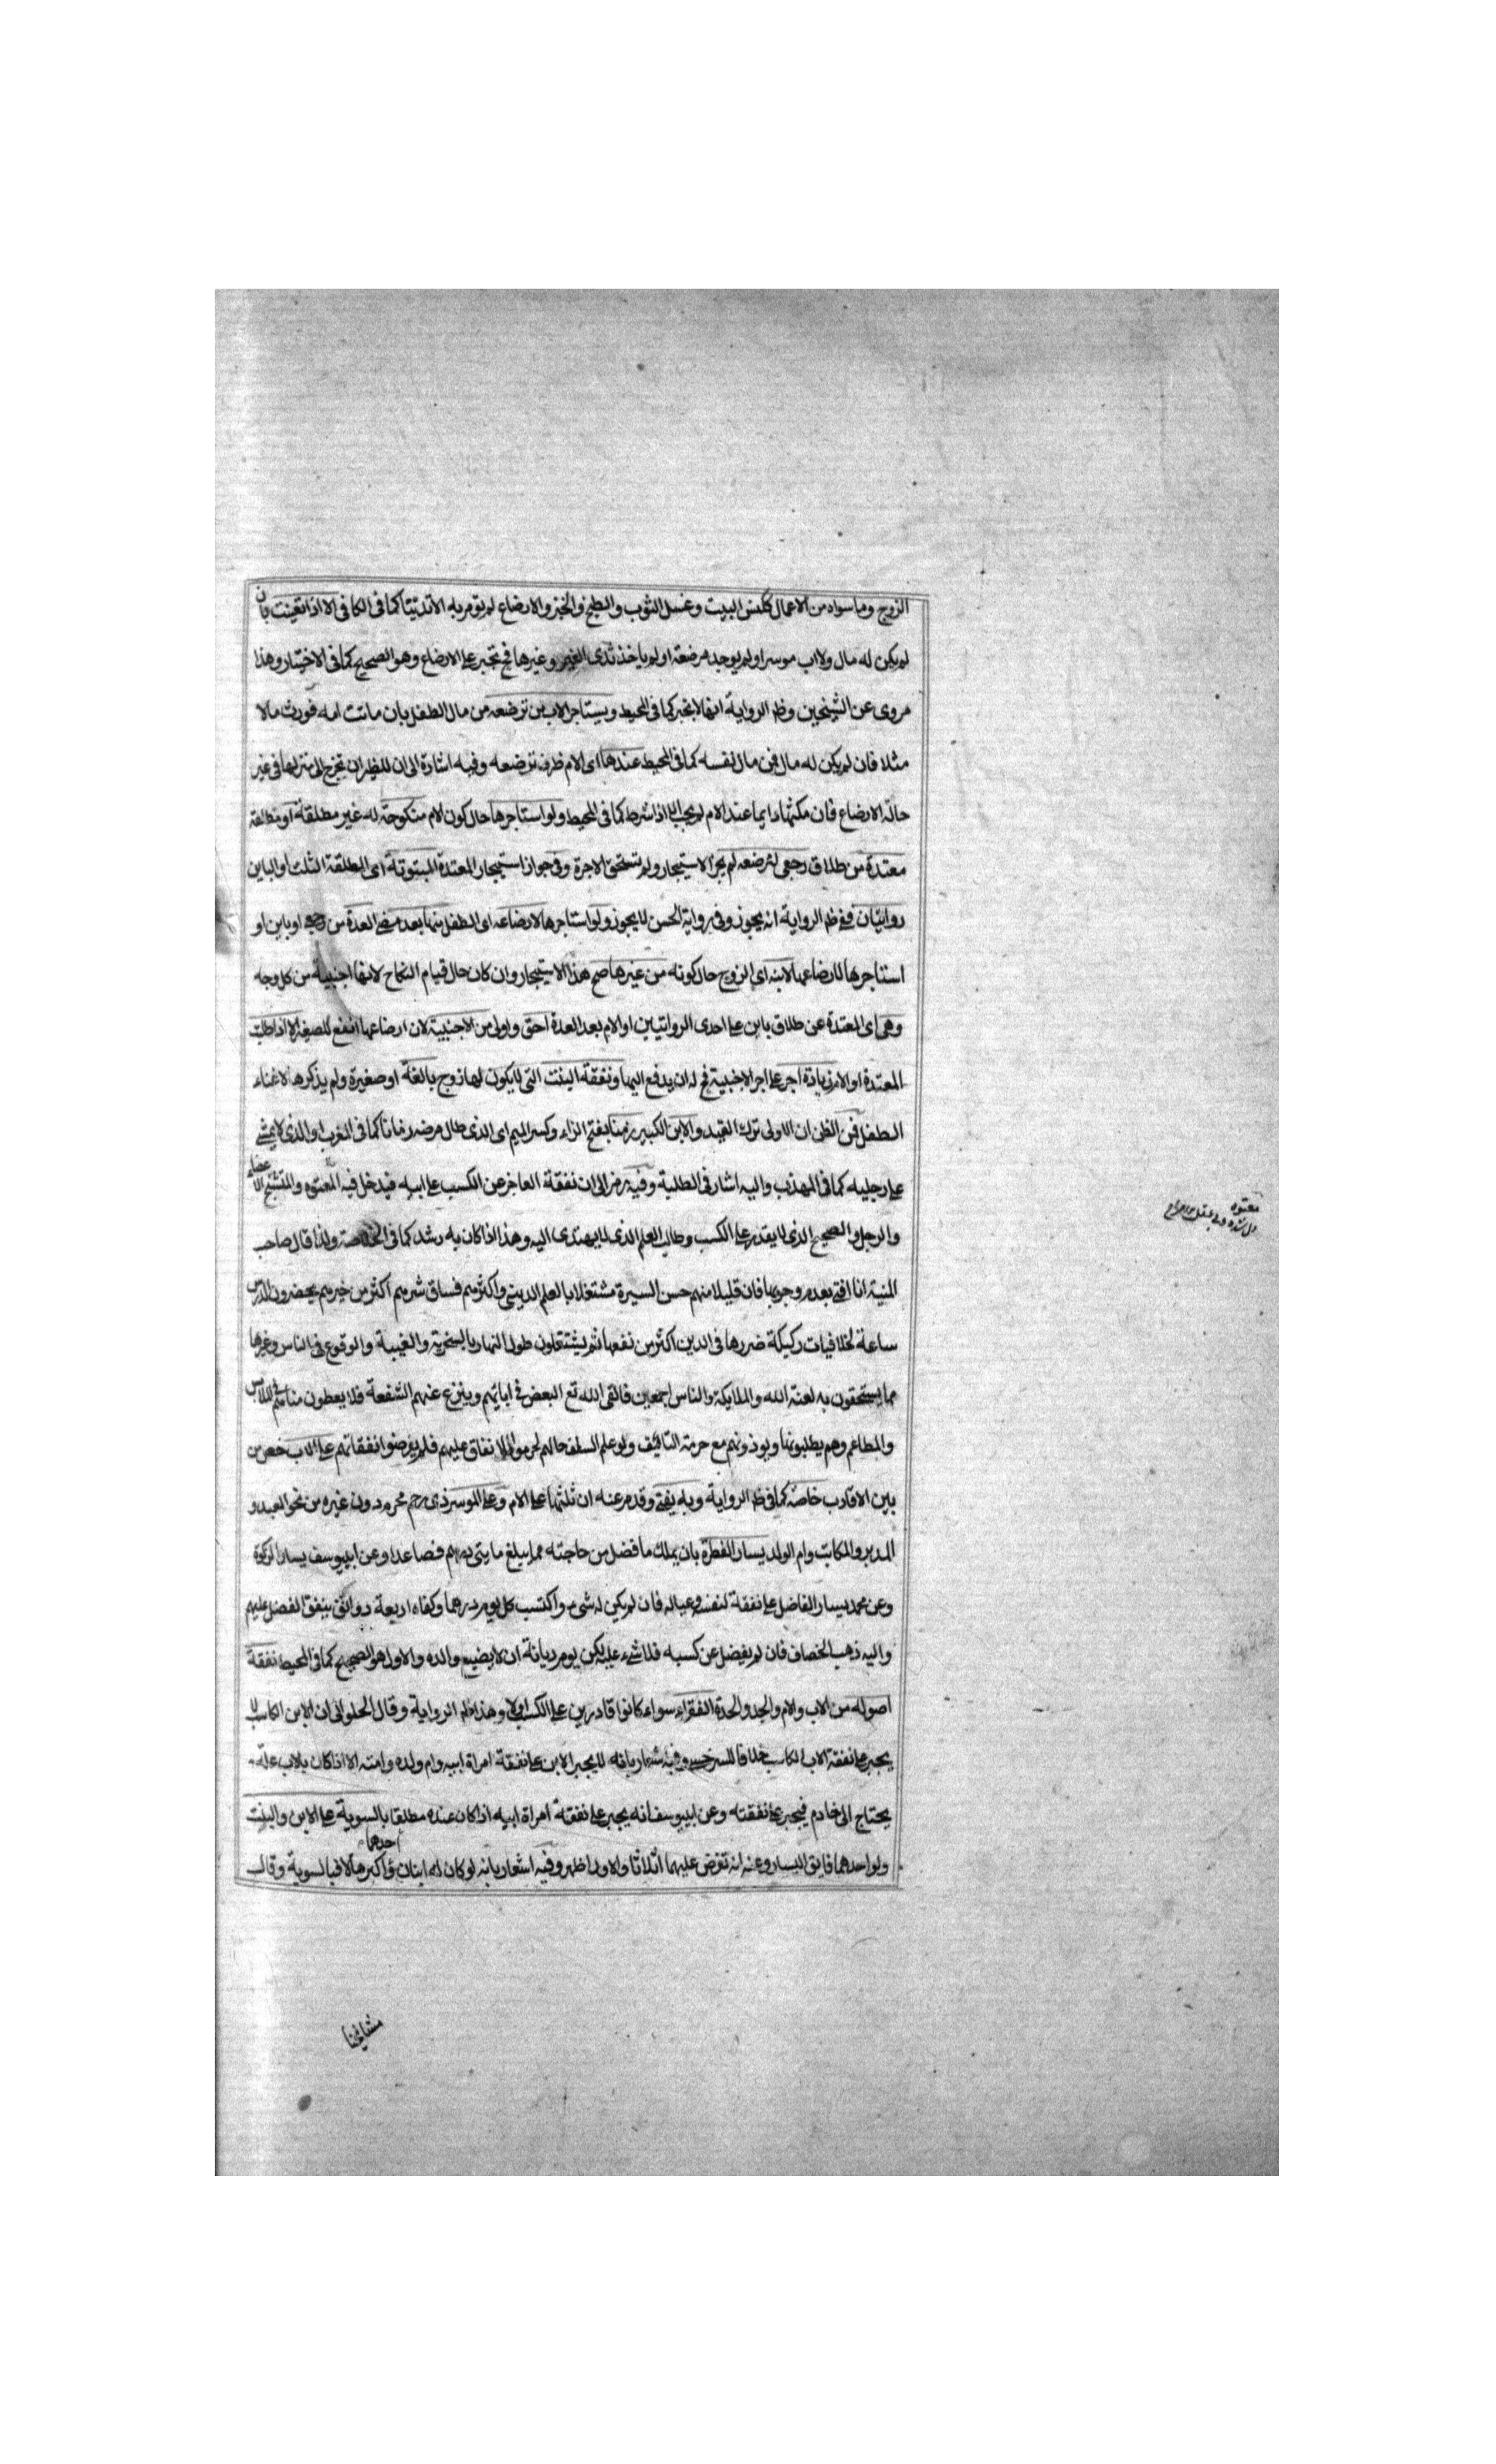 الزوج وما سواه من الاعمال ككنس البيت وغسل الثوب والطبخ والخبز والارضاع لم يؤمر به الا تدينا كما في الكافي الا اذا تعينت بان
لم يكن له مال ولا اب موسر او لم يوجد مرضعة او لم ياخذ ثدى الغير وغيرها فح تجبر على الارضاع وهو الصحيح كما في الاختيار وهذا
مروى عن الشيخين وظ الرواية انها لا تجبر كما في المحيط ويستاجر الاب من ترضعه من مال الطفل بان ماتت امه فورث مالا
مثلا فان لم يكن له مال فمن مال نفسه كما في المحيط عندها اى الام ظرف ترضعه وفيه اشارة الى ان للظئر ان تخرج الى منزلها في غير
حالة الارضاع فان مكثها دايما عند الام لم يجب الا اذا شرط كما في المحيط ولو استاجرها حال كون الام منكوحة له غير مطلقة او مطلقة
معتدة من طلاق رجعى لترضعه لم يجز الاستيجار ولم تستحق الاجرة وفي جواز استيجار المعتدة المبتوتة اى المطلقة الثلث او الباين
روايتان ففي ظ الرواية انه يجوز وفي رواية الحسن لا يجوز ولو استاجرها لارضاعه اى الطفل منها بعد مضى العدة من رجعى او باين او
استاجرها لارضاعها لابنه اى الزوج حال كونه من غيرها صح هذا الاستيجار وان كان حال قيام النكاح لانها اجنبية من كل وجه
وهى اى المعتدة عن طلاق باين على احدى الروايتين او الام بعد العدة احق واولى من الاجنبية لان ارضاعها انفع للصغير الا اذا طلبت
المعتدة او الام زيادة اجر على اجر الاجنبية فح له ان يدفع اليها ونفقة البنت التى لا يكون لها زوج بالغة او صغيرة ولم يذكرها لاغناء
الطفل فمن الظن ان الاولى ترك القيد والابن الكبير زمنا بفتح الزاء وكسر الميم اى الذى طال مرضه زمانا كما في المغرب او الذى لا يمشى
على رجليه كما في المهذب واليه اشار في الطلبة وفيه رمز الى ان نفقة العاجز عن الكسب على ابيه فيدخل فيه المعتوه والمتشنج الاعضاء
والرجل والصحيح الذى لا يقدر على الكسب وطالب العلم الذى لا يهتدى اليه وهذا اذا كان به رشد كما في الخلاصة ولذا قال صاحب
المنية انا افتى بعدم وجوبها فان قليلا منهم حسن السيرة مشتغلا بالعلم الدينى واكثرهم فساق شرهم اكثر من خيرهم يحضرون الدرس
ساعة لخلافيات ركيكة ضررها في الدين اكثر من نفعها ثم يشتغلون طول النهار بالسخرية والغيبة والوقوع في الناس وغيرها
مما يستحقون به لعنة الله والملايكة والناس اجمعين فالقى الله تع البعض في ابائهم وينزع عنهم الشفعة فلا يعطون مناهم في الملابس
والمطاعم وهم يطلبونها ويوذونهم مع حرمة التافيف ولو علم السلف حالهم لحرموا الانفاق عليهم فلم يفرضوا نفقاتهم على الاب خص من
بين الاقارب خاصة كما في ظ الرواية وبه يفتى وقد مر عنه ان ثلثها على الام وعلى الموسر ذى رحم محرم دون غيره من نحو العبد و
المدبر والمكاتب وام الولد يسار الفطرة بان يملك ما فضل من حاجته مما يبلغ مايتى درهم فصاعدا وعن ابيوسف يسار الزكوة
وعن محمد يسار الفاضل على نفقة لنفسه وعياله فان لم يكن له شىء واكتسب كل يوم درهما وكفاه اربعة دوانق ينفق الفضل عليهم
واليه ذهب الخصاف فان لم يفضل عن كسبه فلا شىء عليه لكن يومر ديانة ان لا يضيع والده والاول هو الصحيح كما في المحيط نفقة
اصوله من الاب والام والجد والجدة الفقراء سواء كانوا قادرين على الكسب او لا وهذا ظ الرواية وقال الحلوانى ان الابن الكاسب لا
يجبر على نفقة الاب الكاسب خلافا للسرخسى وفيه شعار بانه لا يجبر الابن على نفقة امراة ابيه وام ولده وامته الا اذا كان بالاب علة
يحتاج الى خادم فيجبر على نفقته وعن ابيوسف انه يجبر على نفقة امراة ابيه اذا كان عنده مطلقا بالسوية على الابن والبنت
ولو احدهما فايق اليسار وعنه انه تفرض عليهما اثلاثا والاول اظهر وفيه اشعار بانه لو كان له ابنان احدهما فبالسوية وقال
مشايخنا
معتوه